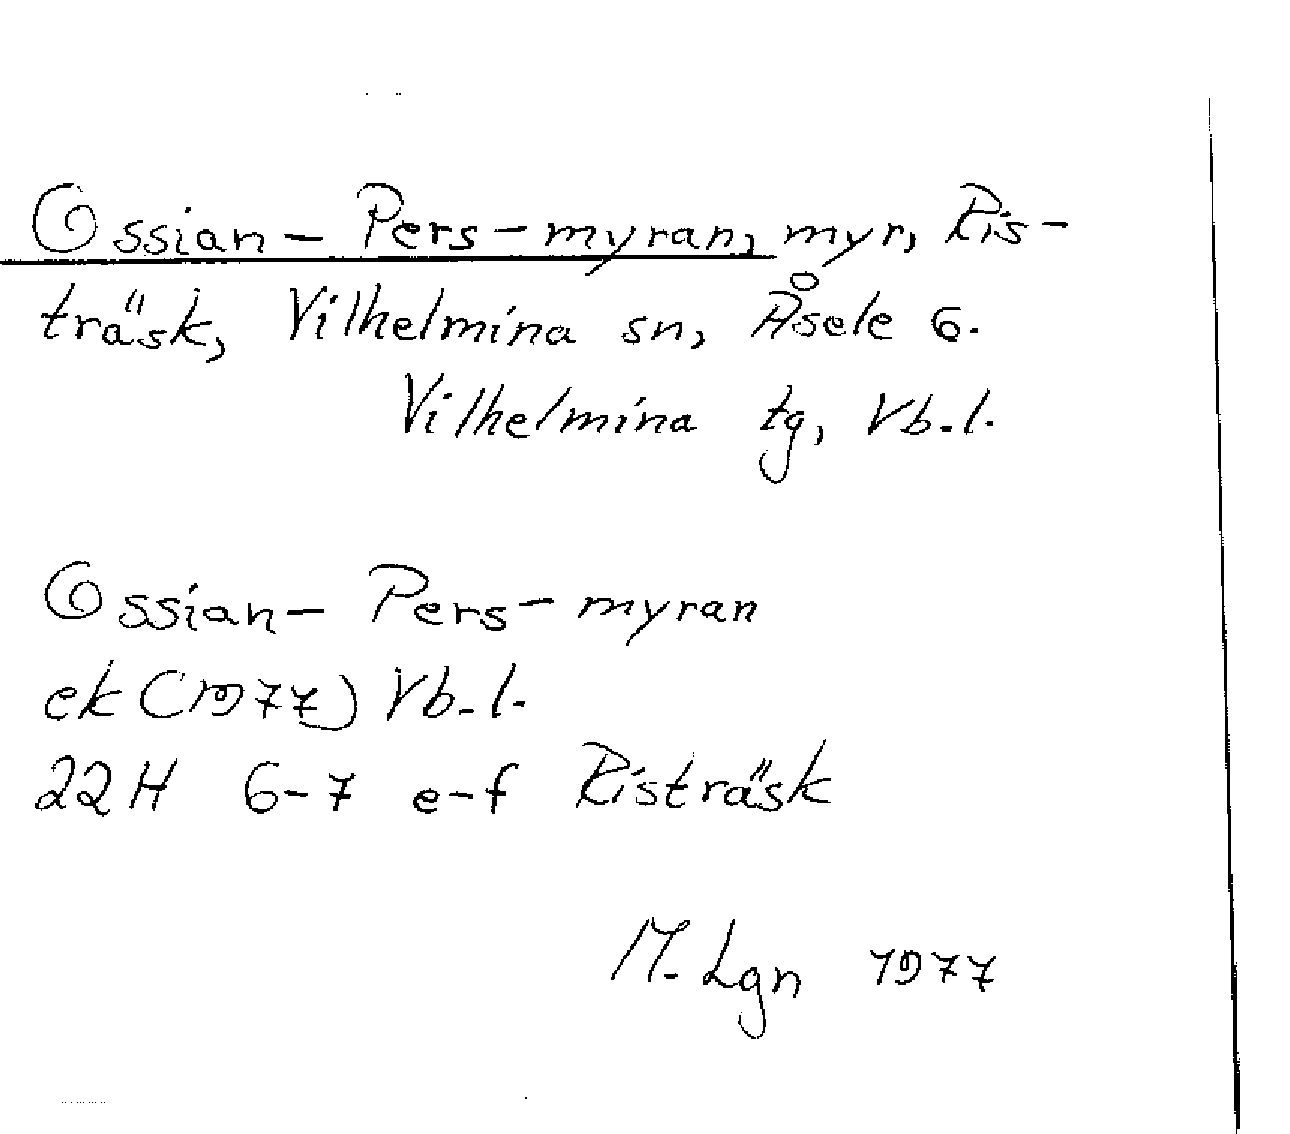 Ossian-Pers-myran, myr, Ris-
träsk, Vilhelmina sn, Åsele 6.
Vilhelmina tg, Vb.l.
Ossian-Pers-myran
ek (1977) Vb.l.
22H 6-7 e-f Risträsk
M. Lgn 1977